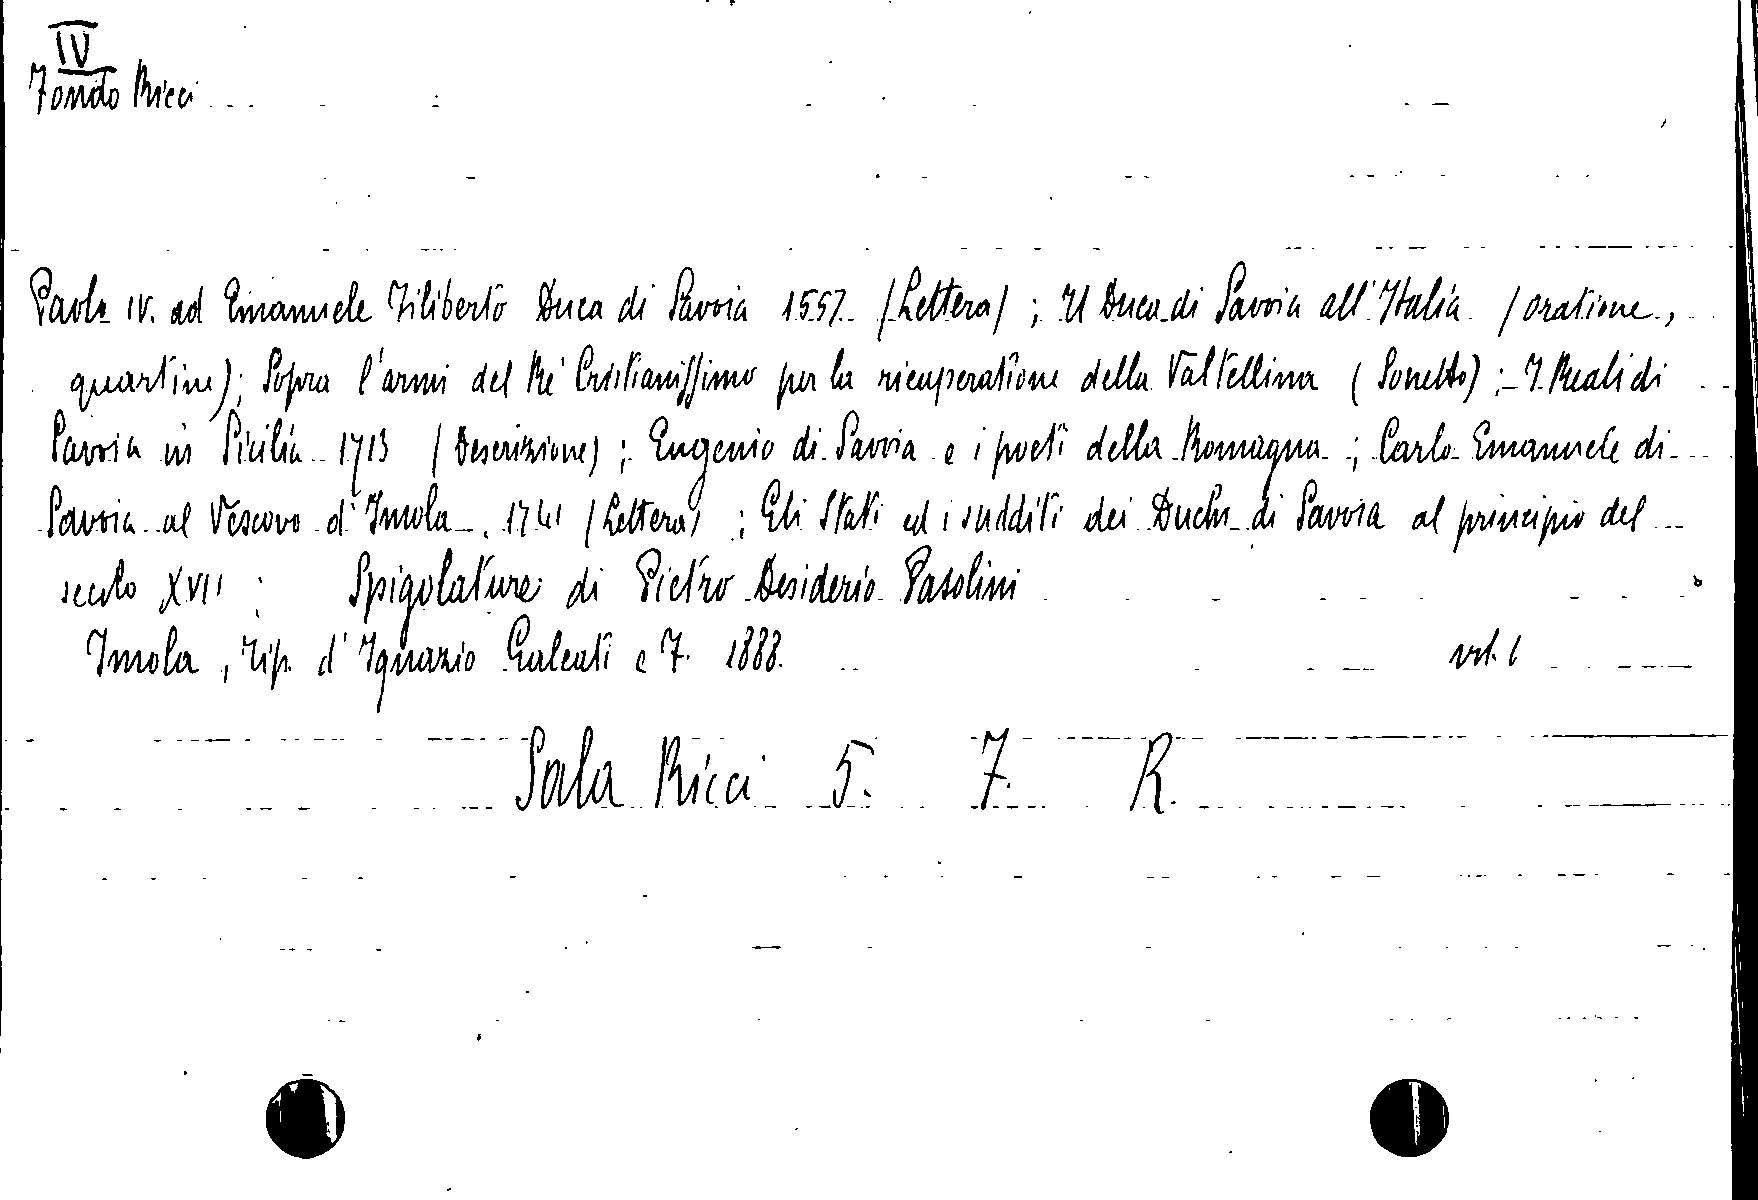 IV
Fondo Ricci
Paolo IV. ad Emanuele Filiberto Duca di Savoia 1557. (Lettera) ; Il Duca di Savoia all'Italia (oratione,
quartine); Sopra l'armi del Ré Cristianissimo per la ricuperatione della Valtellina (Sonetto) ; I Reali di
Savoia in Sicilia 1713 (Descrizione) ; Eugenio di Savoia e i poeti della Romagna ; Carlo Emanuele di
Savoia al Vescovo d'Imola. 1741 (Lettera) ; Gli Stati ed i sudditi dei Duchi di Savoia al principio del
secolo XVII : Spigolature di Pietro Desiderio Pasolini
Imola, Tip. d'Ignazio Galeati e F. 1888. vol. 1
Sala Ricci 5. 7. R.